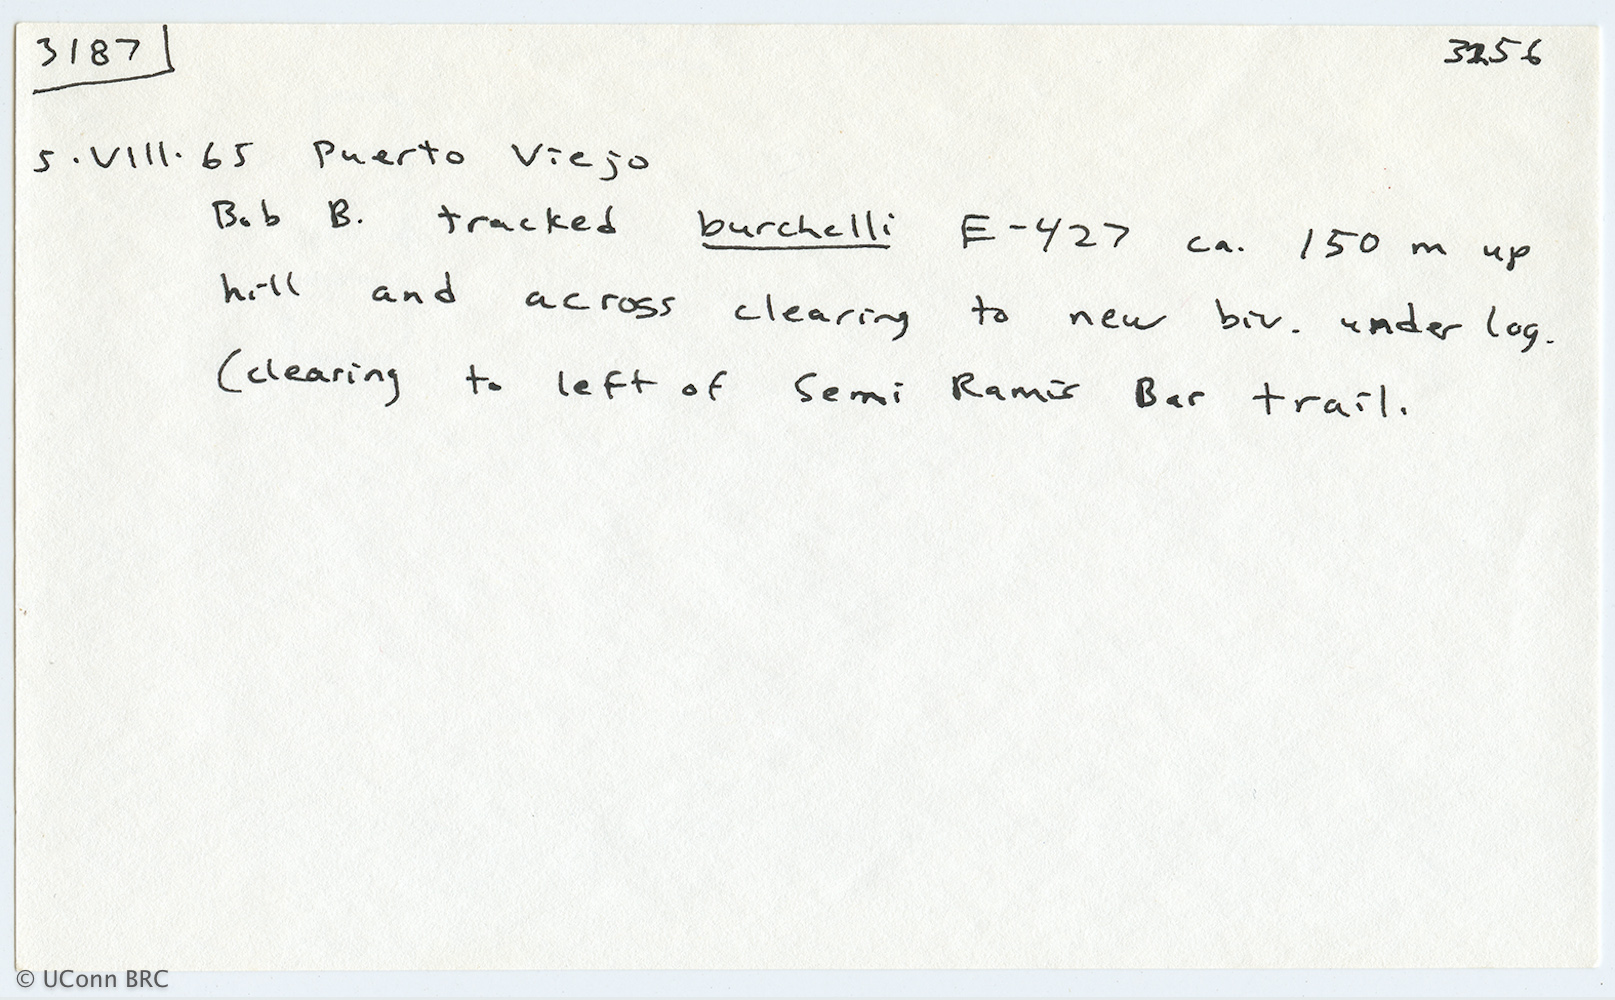 3187 3256
5.VIII.65 Puerto Viejo
Bob B. tracked burchelli E-427 ca. 150 m up
hill and across clearing to new biv. under log.
(clearing to left of Semi Ramis Bar trail.
© UConn BRC